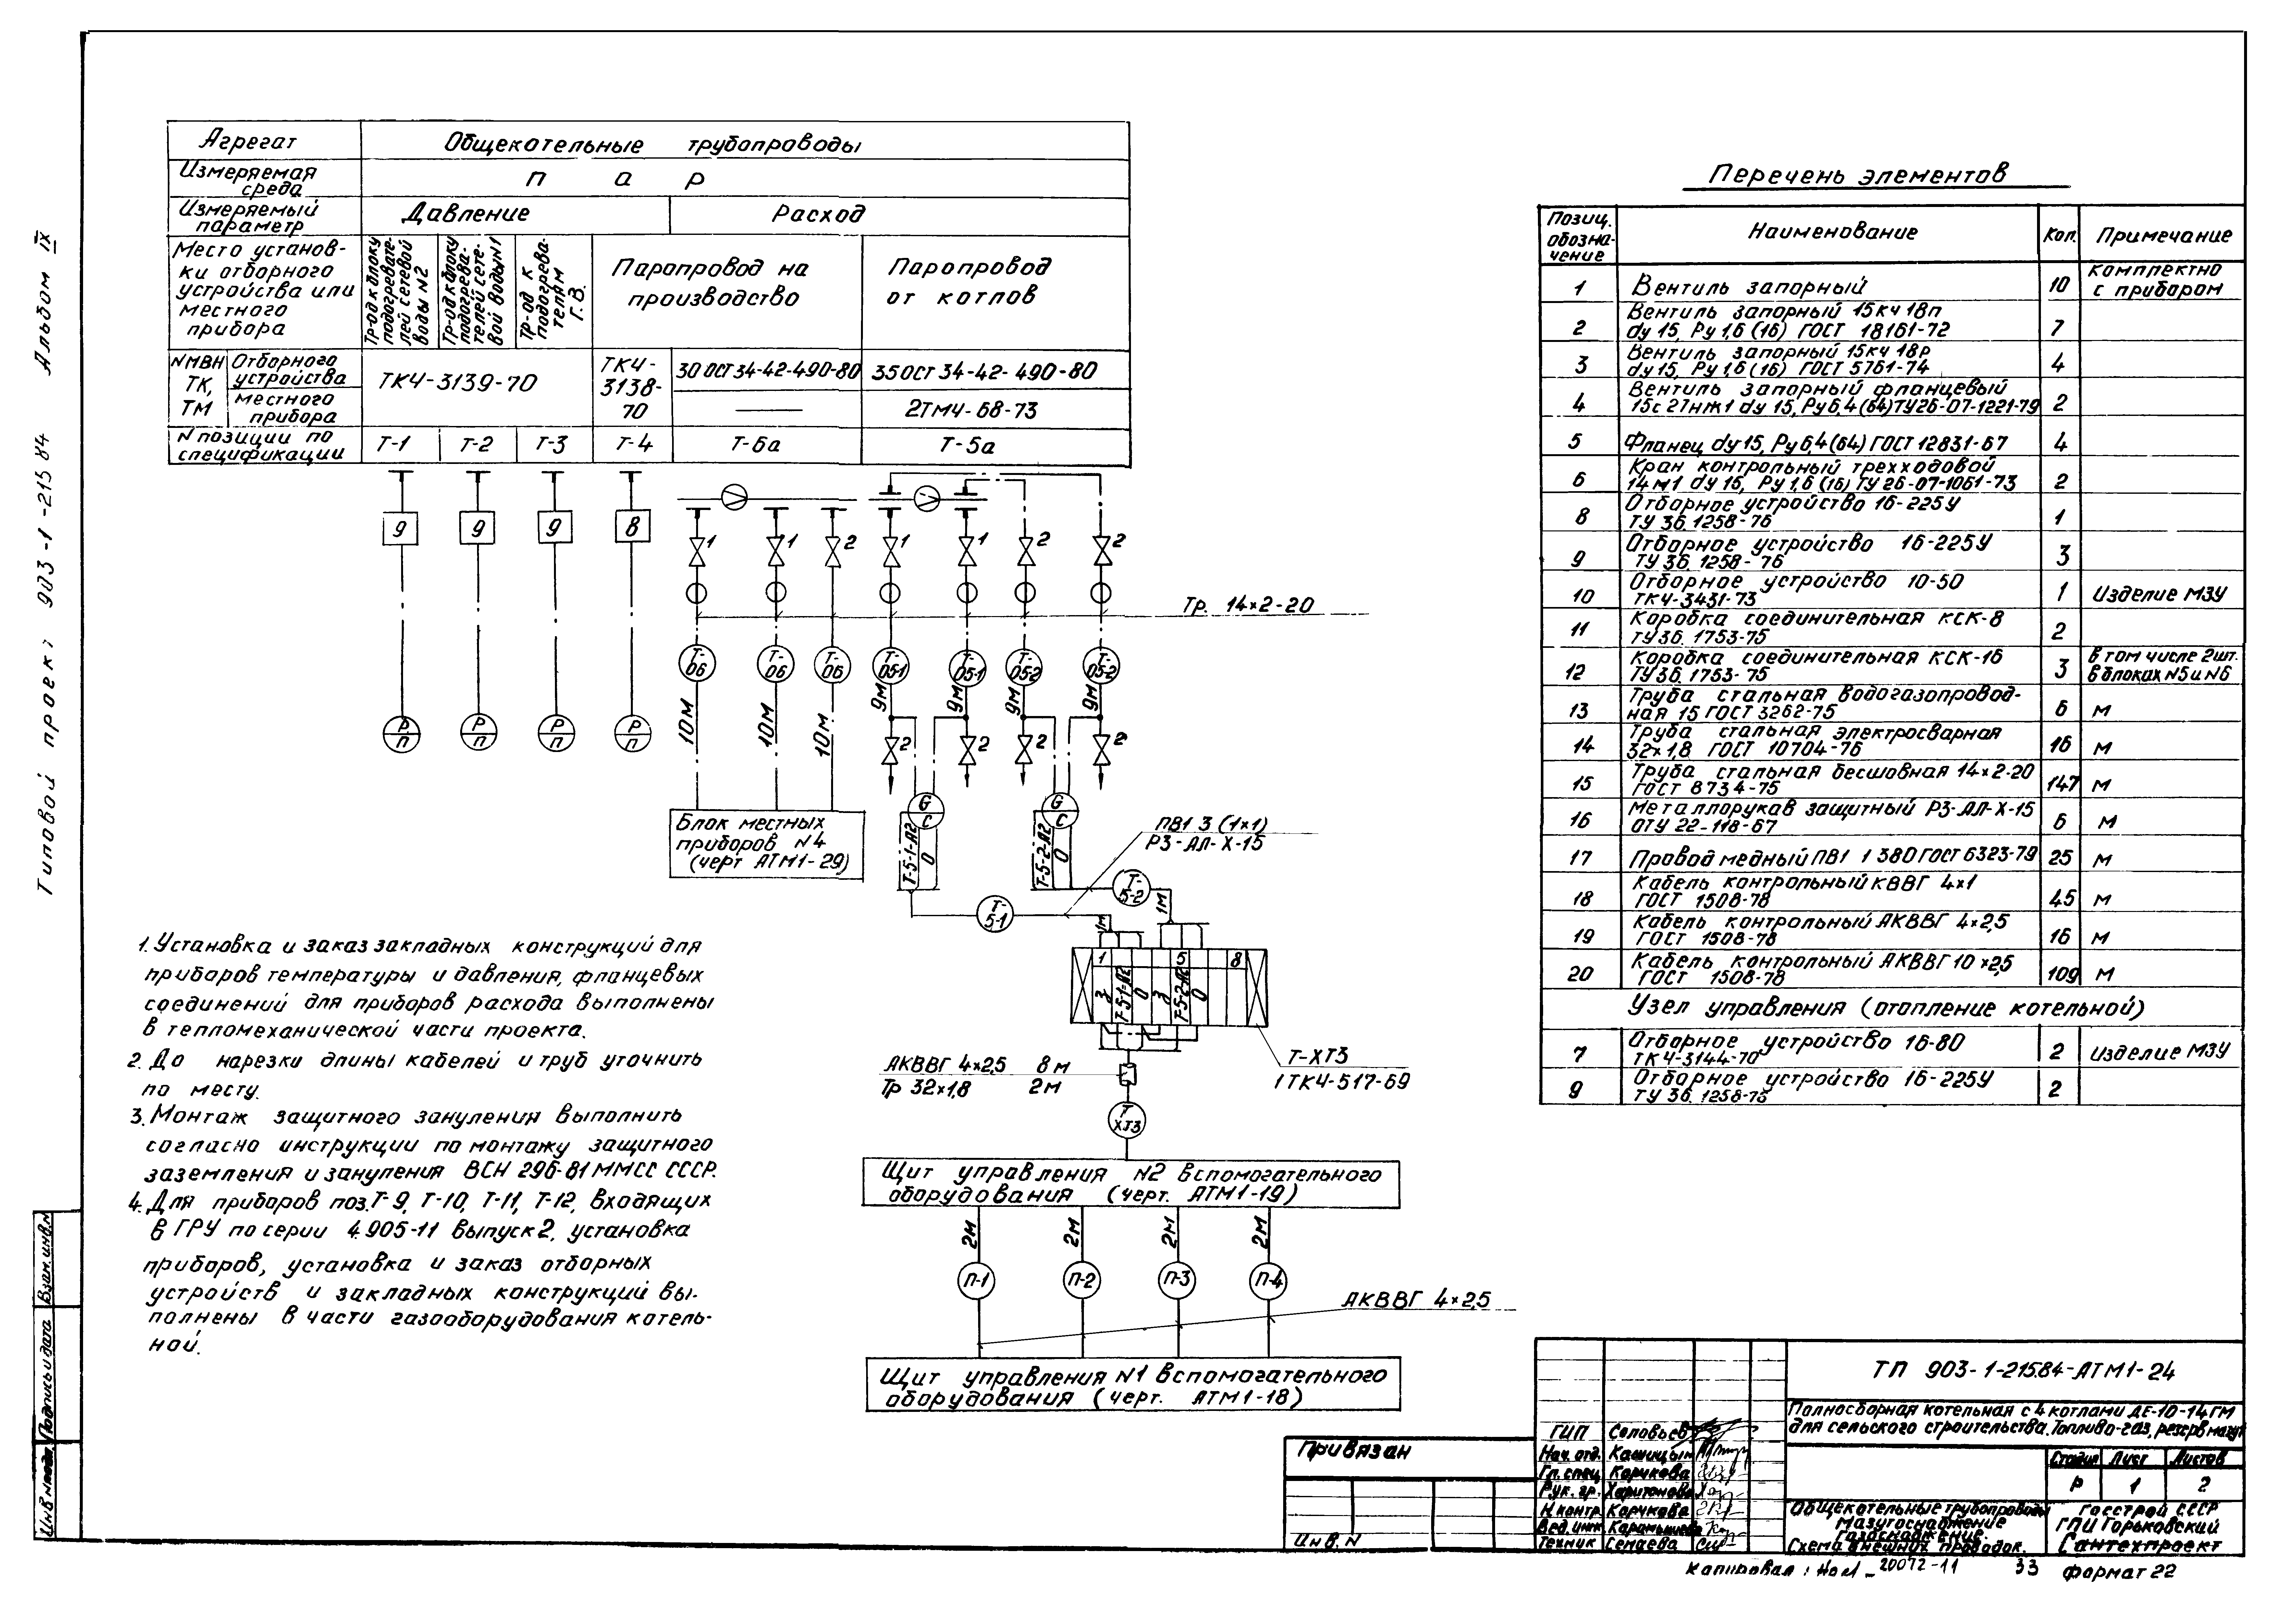 Типовой проект 903-1-215 84 Альбом IX
Агрегат
Общекотельные трубопроводы
Измеряемая
среда
пар
Измеряемый
параметр
Давление
Расход
Место установ-
ки отборного
устройства или
местного
прибора
Тр-од к блоку
подогревате-
лей сетевой
воды N2
Тр-од к блоку
подогрева-
телей сете-
вой воды N1
Тр-од к
подогрева-
телям
Г.В.
Паропровод на
производство
Паропровод
от котлов
NМВН
ТК,
ТМ
Отборного
устройства
местного
прибора
ТКЧ-3139-70
ТКЧ-
3138-
70
30 ОСТ 34-42-490-80
35 ОСТ 34-42-490-80
2ТМЧ-68-73
N позиции по
спецификации
Т-1
Т-2
Т-3
Т-4
Т-6а
Т-5а
9
9
9
8
1
1
2
1
1
2
2
Тр. 14×2-20
Т-
06
Т-
06
Т-
06
Т-
05-1
Т-
05-1
Т-
05-2
Т-
05-2
Р
п
Р
п
Р
п
Р
п
10м
10м
10м
9м
9м
9м
9м
2
2
2
2
G
С
G
С
Блок местных
приборов N4
(черт АТМ1-29)
Т-5-1-А2
0
Т-5-2-А2
0
ПВ1 3 (1×1)
РЗ-АЛ-Х-15
Т-
5-1
Т-
5-2
1м
1м
1
5
8
3
Т-5-1-А2
0
3
Т-5-2-А2
0
Т-ХТ3
1ТКЧ-517-69
АКВВГ 4×2,5 8м
Тр 32×1,8 2м
Т
ХТ3
Щит управления N2 вспомогательного
оборудования (черт. АТМ1-19)
2м
2м
2м
2м
П-1
П-2
П-3
П-4
АКВВГ 4×2,5
Щит управления N1 вспомогательного
оборудования (черт. АТМ1-18)
1. Установка и заказ закладных конструкций для
приборов температуры и давления, фланцевых
соединений для приборов расхода выполнены
в тепломеханической части проекта.
2. До нарезки длины кабелей и труб уточнить
по месту.
3. Монтаж защитного зануления выполнить
согласно инструкции по монтажу защитного
заземления и зануления ВСН 296-81 ММСС СССР.
4. Для приборов поз. Т-9, Т-10, Т-11, Т-12, входящих
в ГРУ по серии 4.905-11 выпуск 2, установка
приборов, установка и заказ отборных
устройств и закладных конструкций вы-
полнены в части газооборудования котель-
ной.
Перечень элементов
Позиц.
обозна-
чение
Наименование
Кол.
Примечание
1 Вентиль запорный 10 комплектно
с прибором
2 Вентиль запорный 15кч 18п
dу 15, Ру 1,6 (16) ГОСТ 18161-72 7
3 Вентиль запорный 15кч 18р
dу 15, Ру 1,6 (16) ГОСТ 5761-74 4
4 Вентиль запорный фланцевый
15с 27нж1 dу 15, Ру 6,4 (64) ТУ26-07-1221-79 2
5 Фланец dу 15, Ру 6,4 (64) ГОСТ 12831-67 4
6 Кран контрольный трехходовой
14м1 dу 15, Ру 1,6 (16) ТУ 26-07-1061-73 2
8 Отборное устройство 16-225У
ТУ 36. 1258-76 1
9 Отборное устройство 16-225У
ТУ 36. 1258-76 3
10 Отборное устройство 10-50
ТКЧ-3431-73 1 Изделие МЗУ
11 Коробка соединительная КСК-8
ТУ36. 1753-75 2
12 Коробка соединительная КСК-16
ТУ36. 1753-75 3 в том числе 2шт.
в блоках N5 и N6
13 Труба стальная водогазопровод-
ная 15 ГОСТ 3262-75 6 м
14 Труба стальная электросварная
32×1,8 ГОСТ 10704-76 16 м
15 Труба стальная бесшовная 14×2-20
ГОСТ 8734-75 147 м
16 Металлорукав защитный РЗ-АЛ-Х-15
ОТУ 22-118-67 6 м
17 Провод медный ПВ1 1 380 ГОСТ 6323-79 25 м
18 Кабель контрольный КВВГ 4×1
ГОСТ 1508-78 45 м
19 Кабель контрольный АКВВГ 4×2,5
ГОСТ 1508-78 16 м
20 Кабель контрольный АКВВГ 10×2,5
ГОСТ 1508-78 109 м
Узел управления (отопление котельной)
7 Отборное устройство 16-80
ТКЧ-3144-70 2 Изделие МЗУ
9 Отборное устройство 16-225У
ТУ 36. 1258-76 2
ТП 903-1-215.84-АТМ1-24
Полносборная котельная с 4 котлами ДЕ-10-14ГМ
для сельского строительства. Топливо-газ, резерв мазут
Стадия Лист Листов
Р 1 2
Общекотельные трубопроводы
Мазутоснабжение
Газоснабжение.
Схема внешних проводок.
Госстрой СССР
ГПИ Горьковский
Сантехпроект
ГИП Соловьев
Нач. отд. Кашицын
Гл. спец Корчкова
Рук. гр. Харитонова
Н.контр. Корчкова
Вед. инж.
Техник
Привязан
Инв. N
Взам. инв. N
Подпись и дата
Инв N подл.
Копировал:
20072-11
33
Формат 22